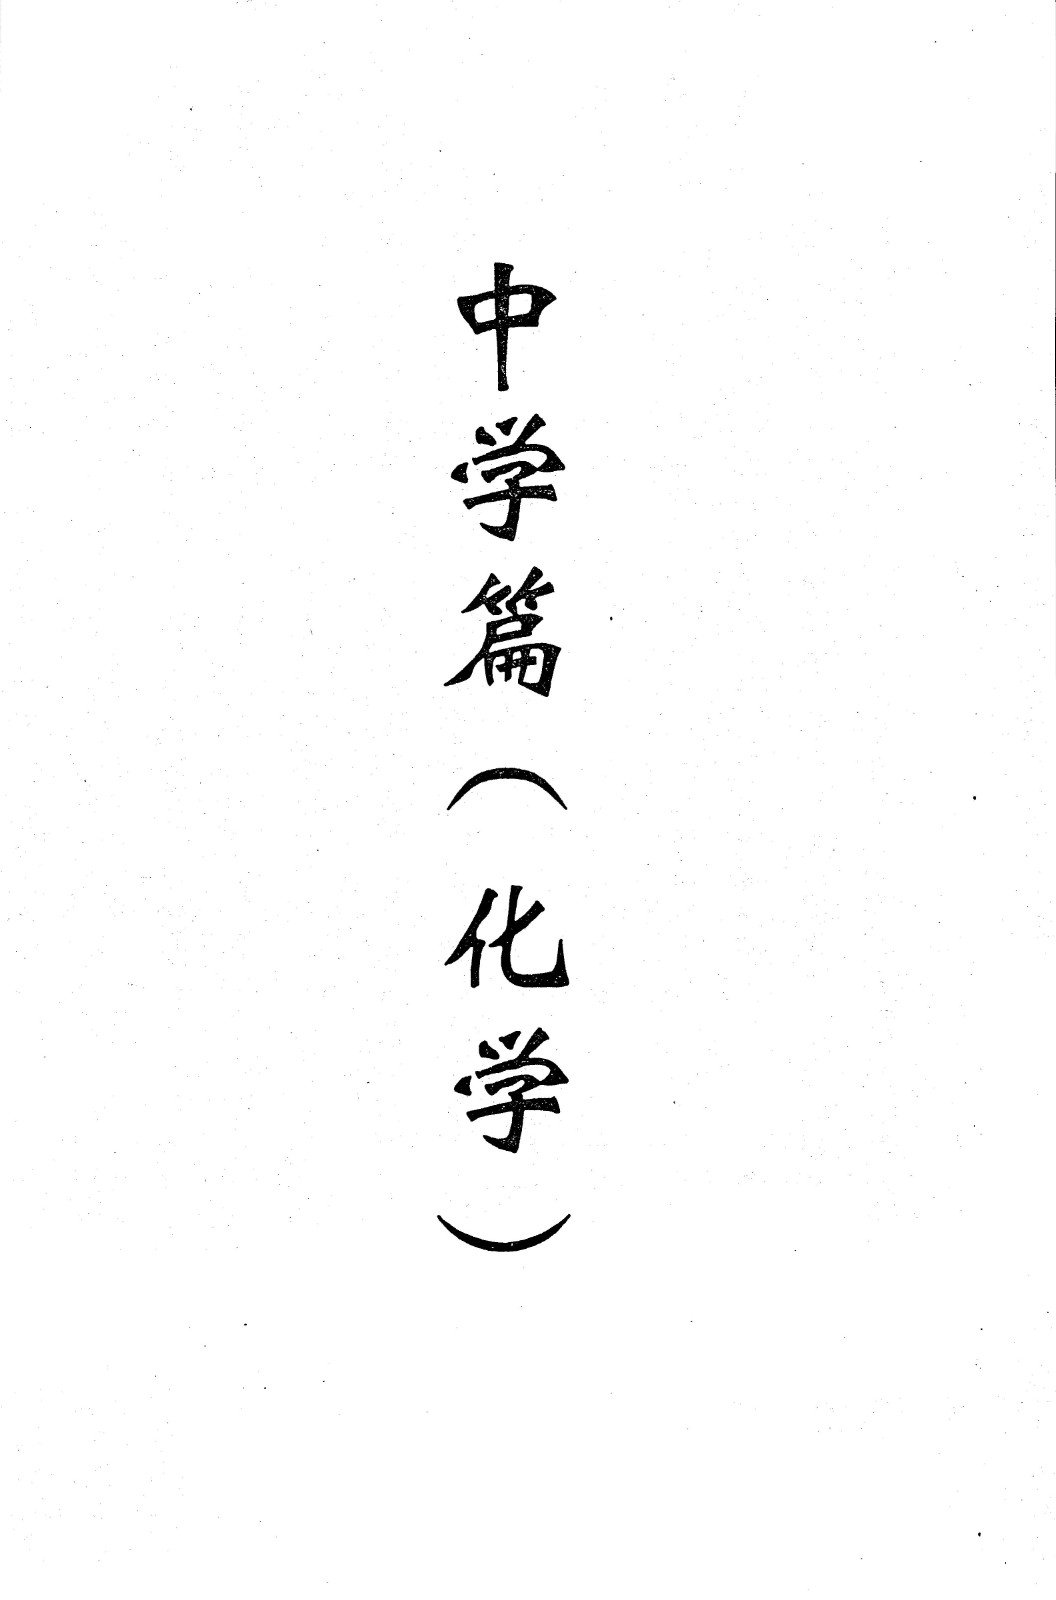 中学篇（化学）